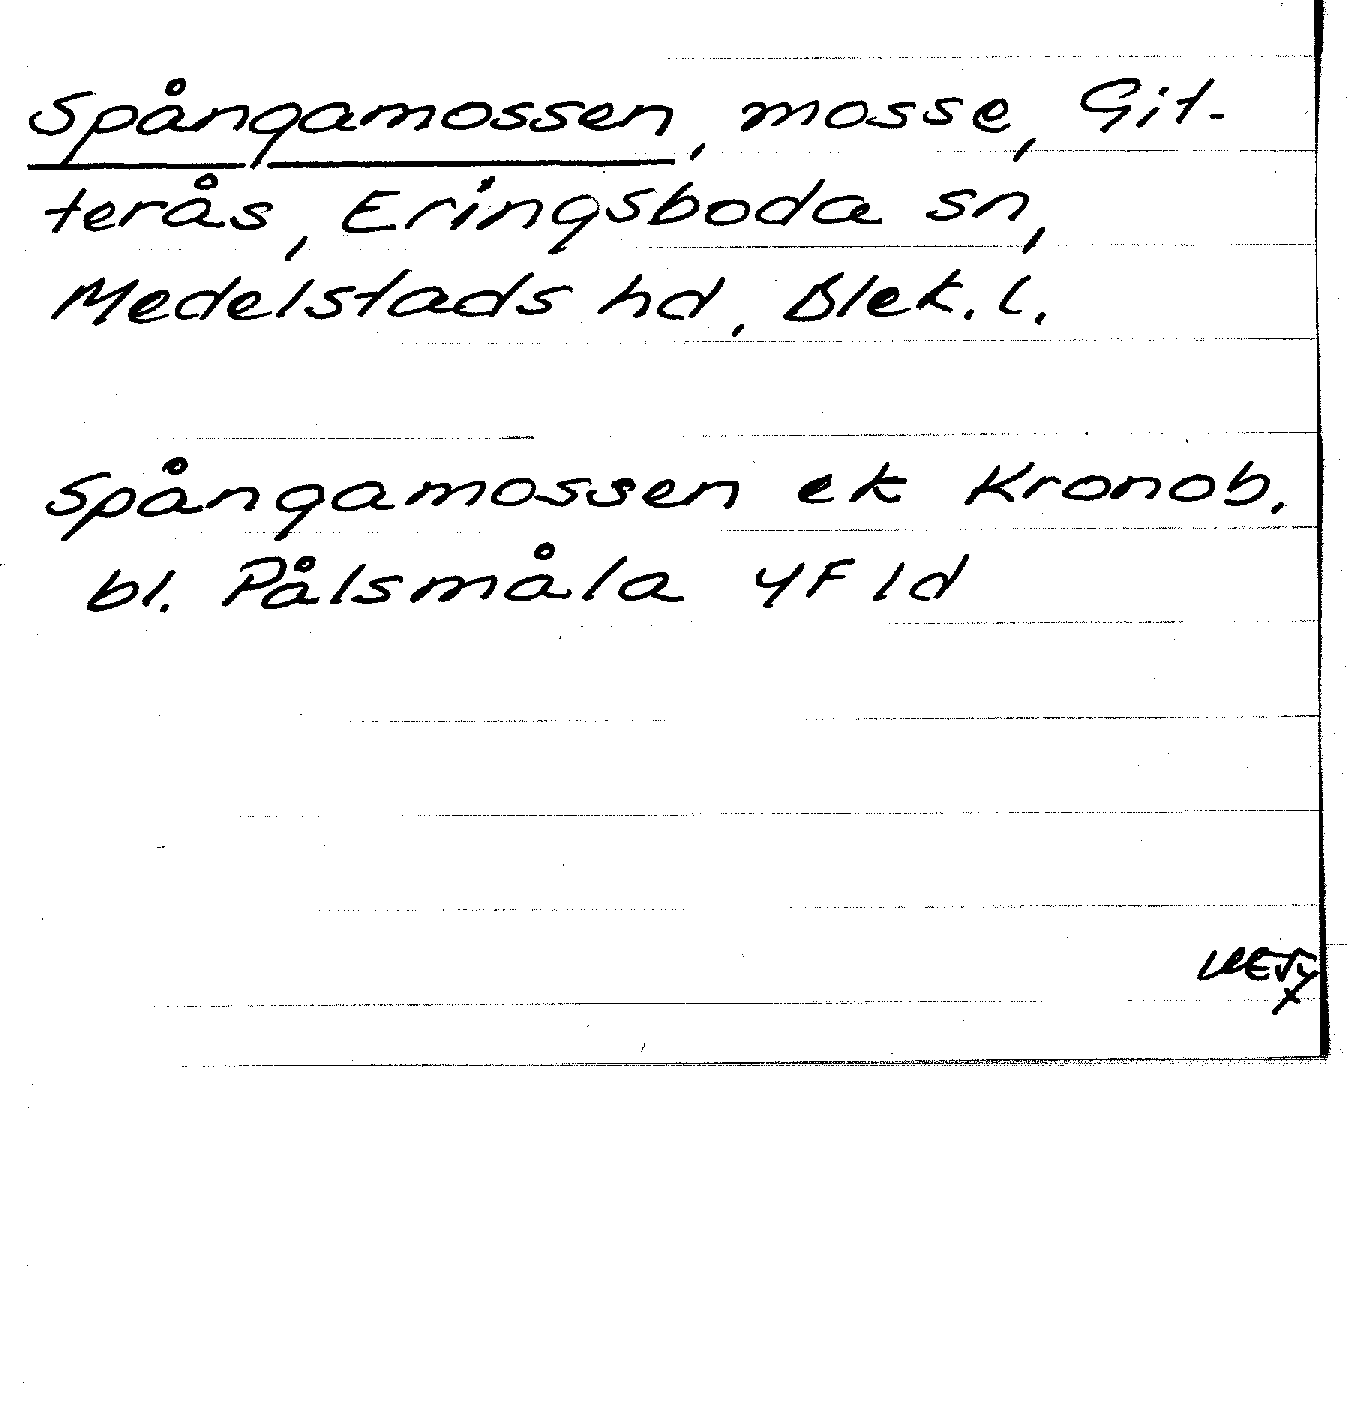 Spångamossen, mosse, Git-
terås, Eringsboda sn,
Medelstads hd, Blek. l.
Spångamossen ek Kronob.
bl. Pålsmåla 4F 1d